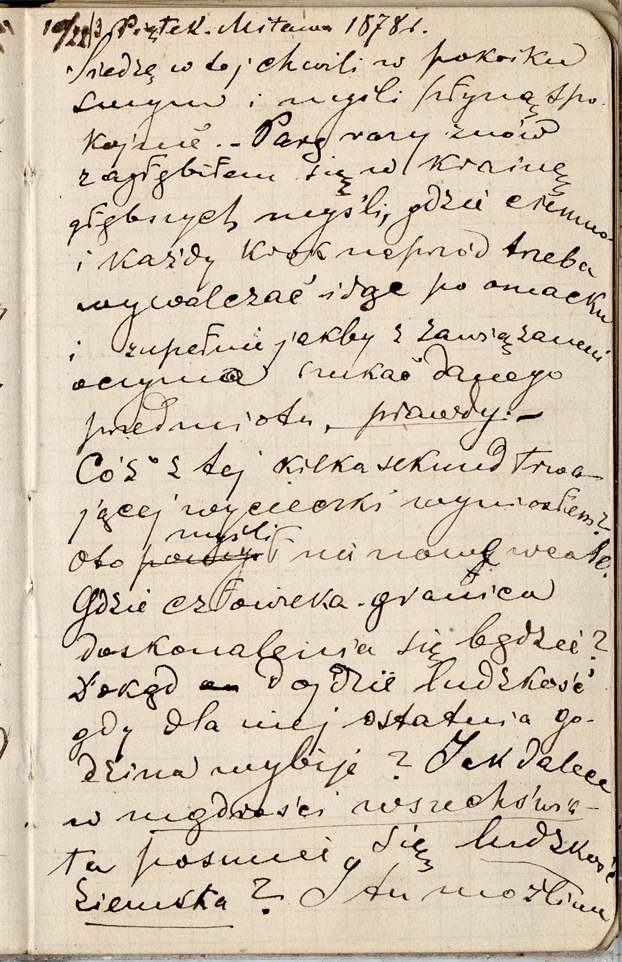 10/22/3 Piątek. Mitawa 1878 r.
Siedzę w tej chwili w pokoiku
swym i myśli płyną spo-
kojnie. - Parę razy znów
zagłębiłem się w krainę
głębszych myśli, gdzie ciemno
i każdy krok naprzód trzeba
wywalczać idąc po omacku
i zupełnie jakby z zawiązanemi
oczyma szukać danego
przedmiotu, prawdy. -
Cóż z tej kilka sekund trwa-
jącej wycieczki wyniosłem?
myśli
Oto nie nową wcale.
Gdzie człowieka granica
doskonalenia się będzie?
Dokąd dojdzie ludzkość
gdy dla niej ostatnia go-
dzina wybije? Jak dalece
w mądrości wszechświa-
ta posunie się ludzkość
ziemska? I tu możliwa